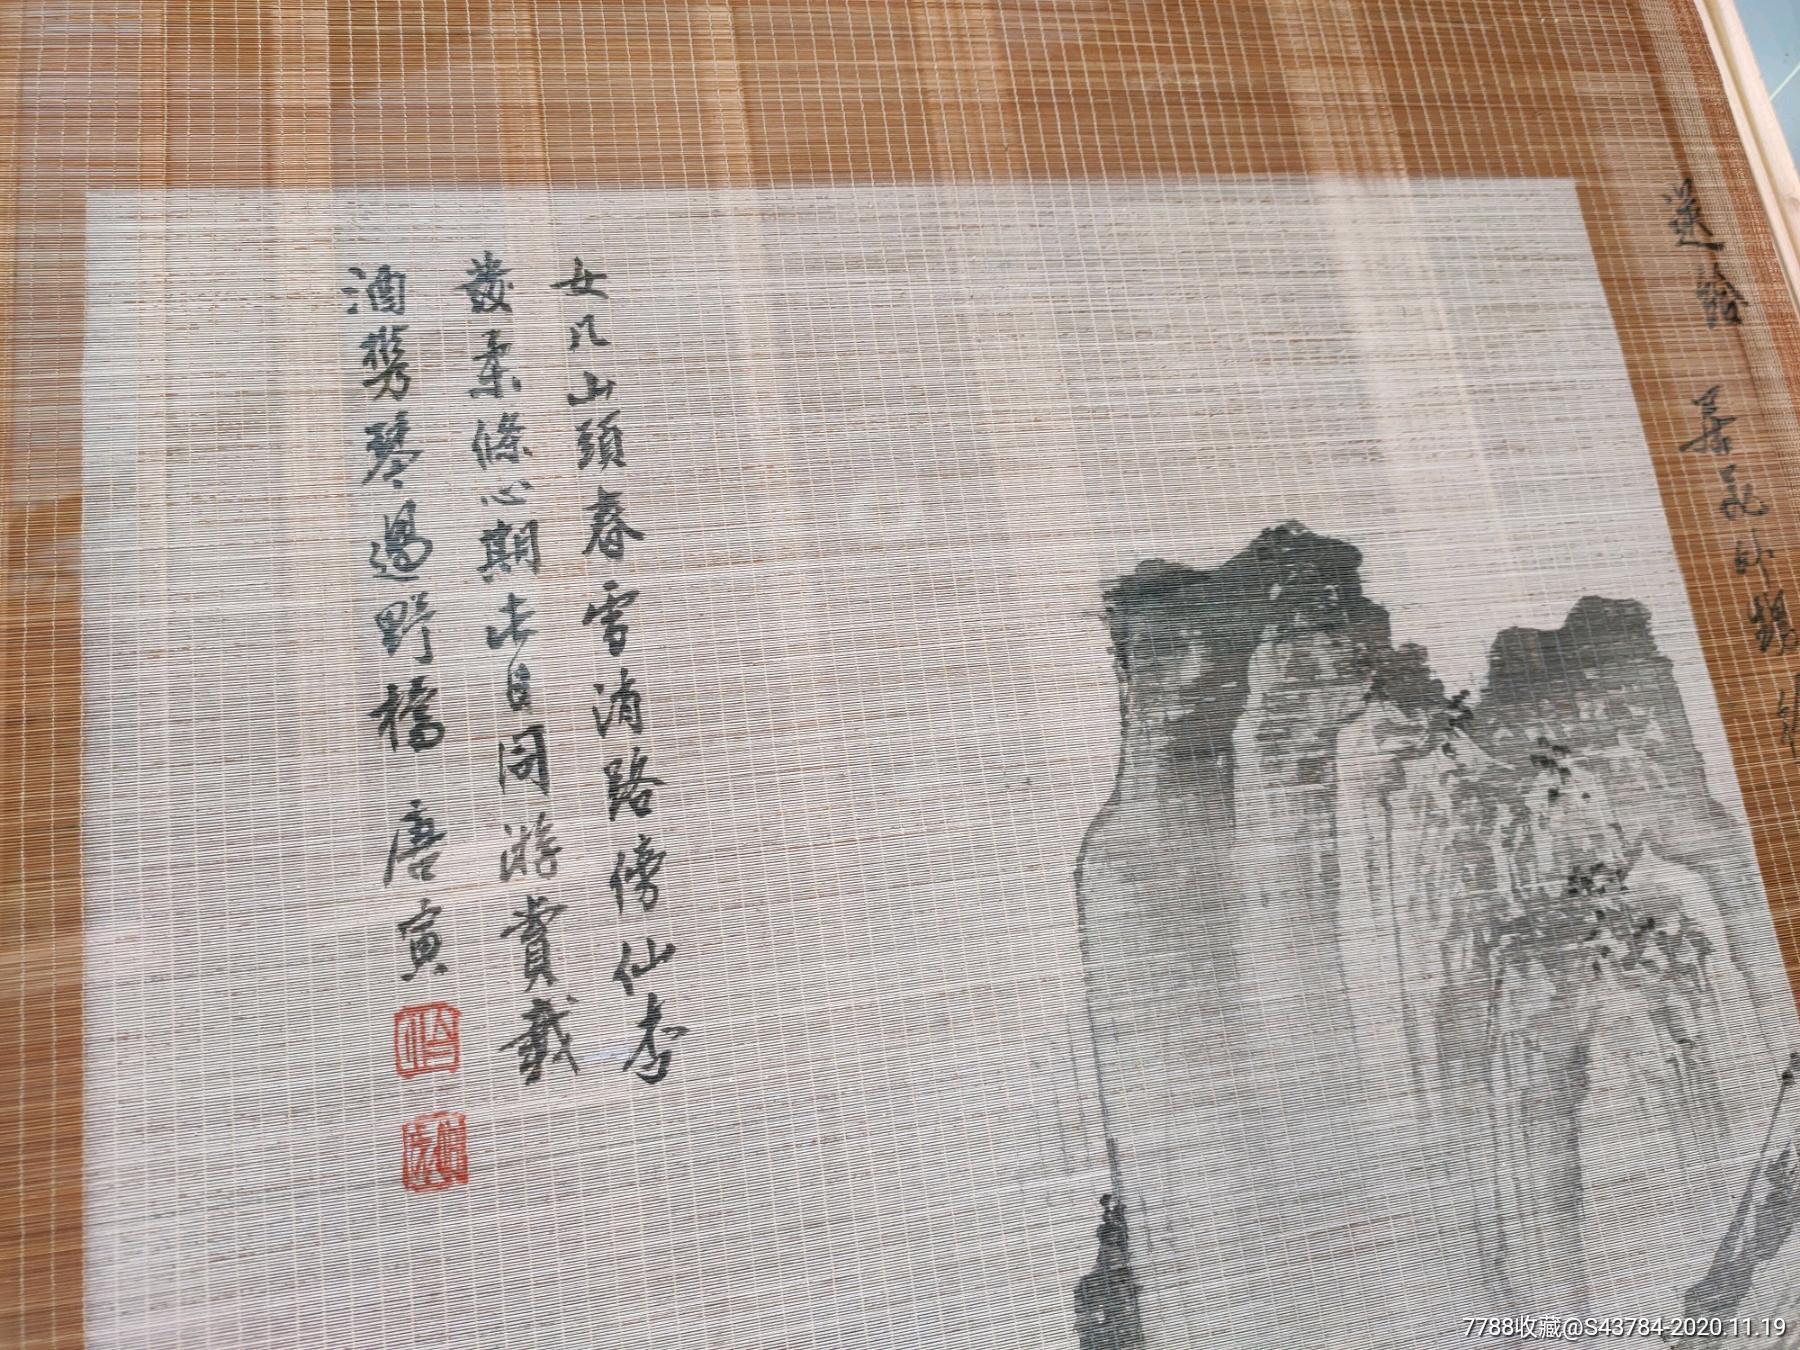 女几山頭春雪消路傍仙杏
發柔條心期此日同游賞載
酒攜琴過野橋 唐寅
送給
7788收藏@S43784-2020.11.19